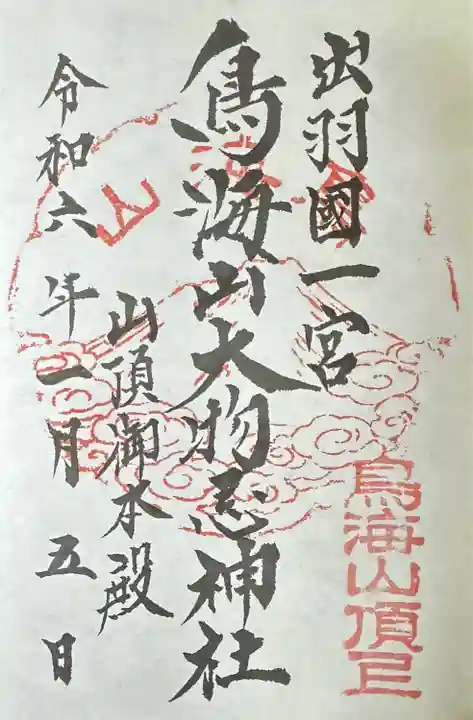 出羽國一宮
鳥海山大物忌神社
山頂御本殿
令和六年一月五日
鳥海山頂
山